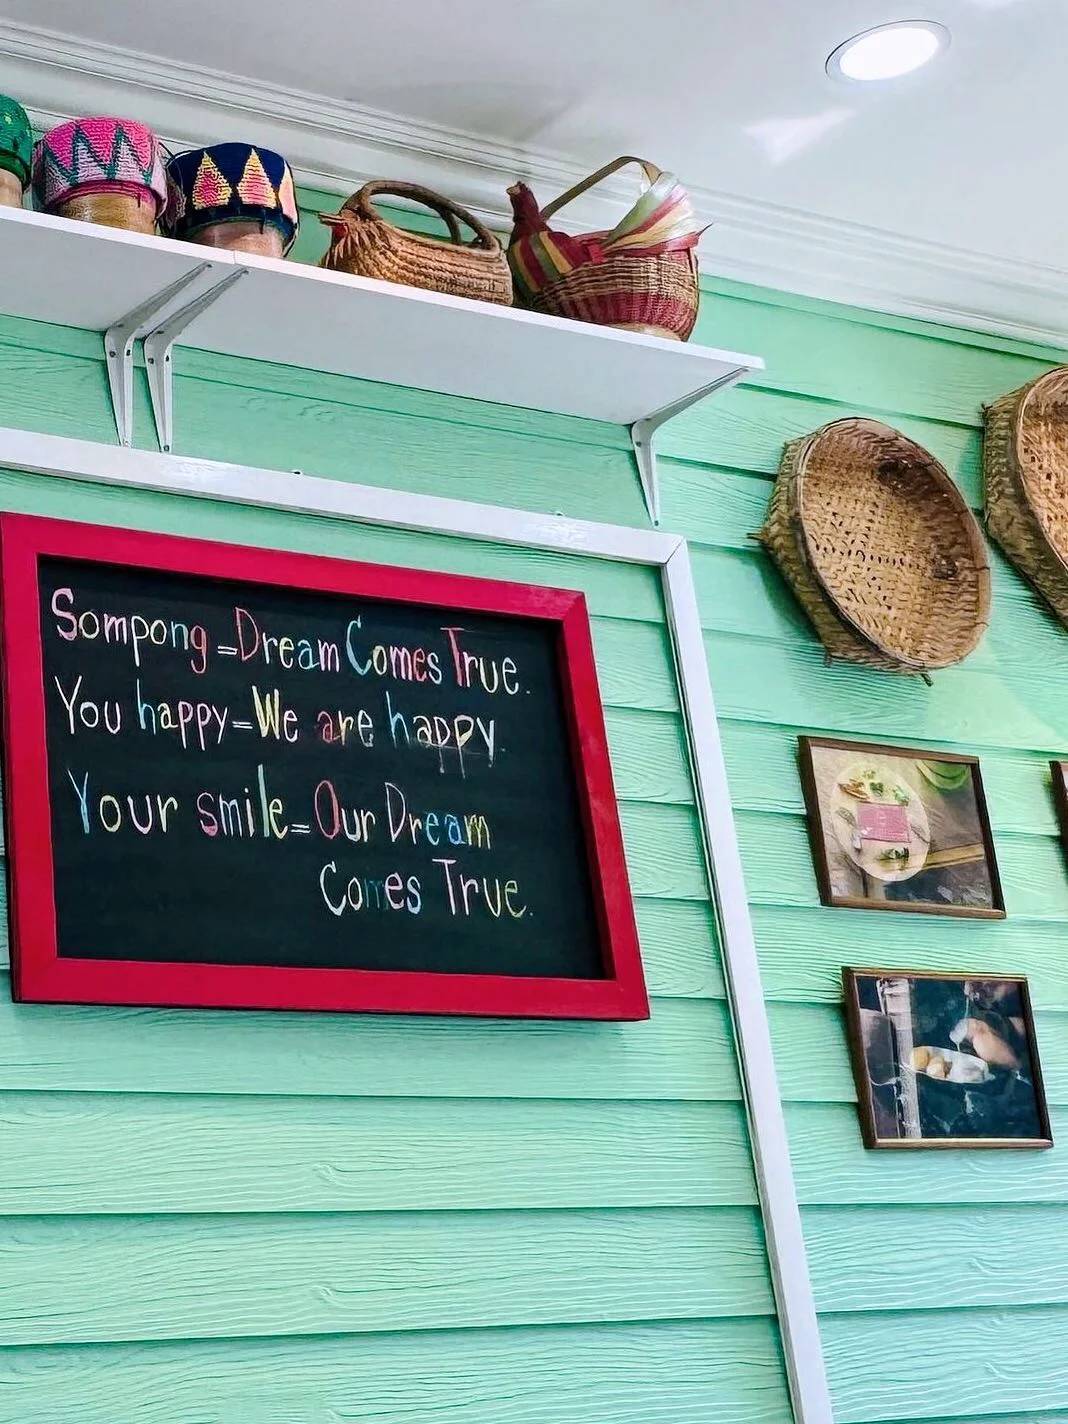 Sompong=Dream Comes True.
You happy=We are happy.
Your smile=Our Dream
Comes True.